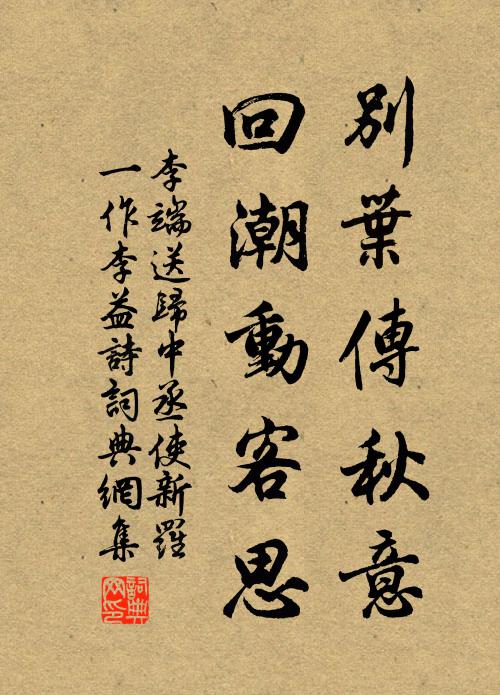 別葉傳秋意
回潮動客思
李端送歸中丞使新羅
一作李益詩詞典網集
詞典
网印